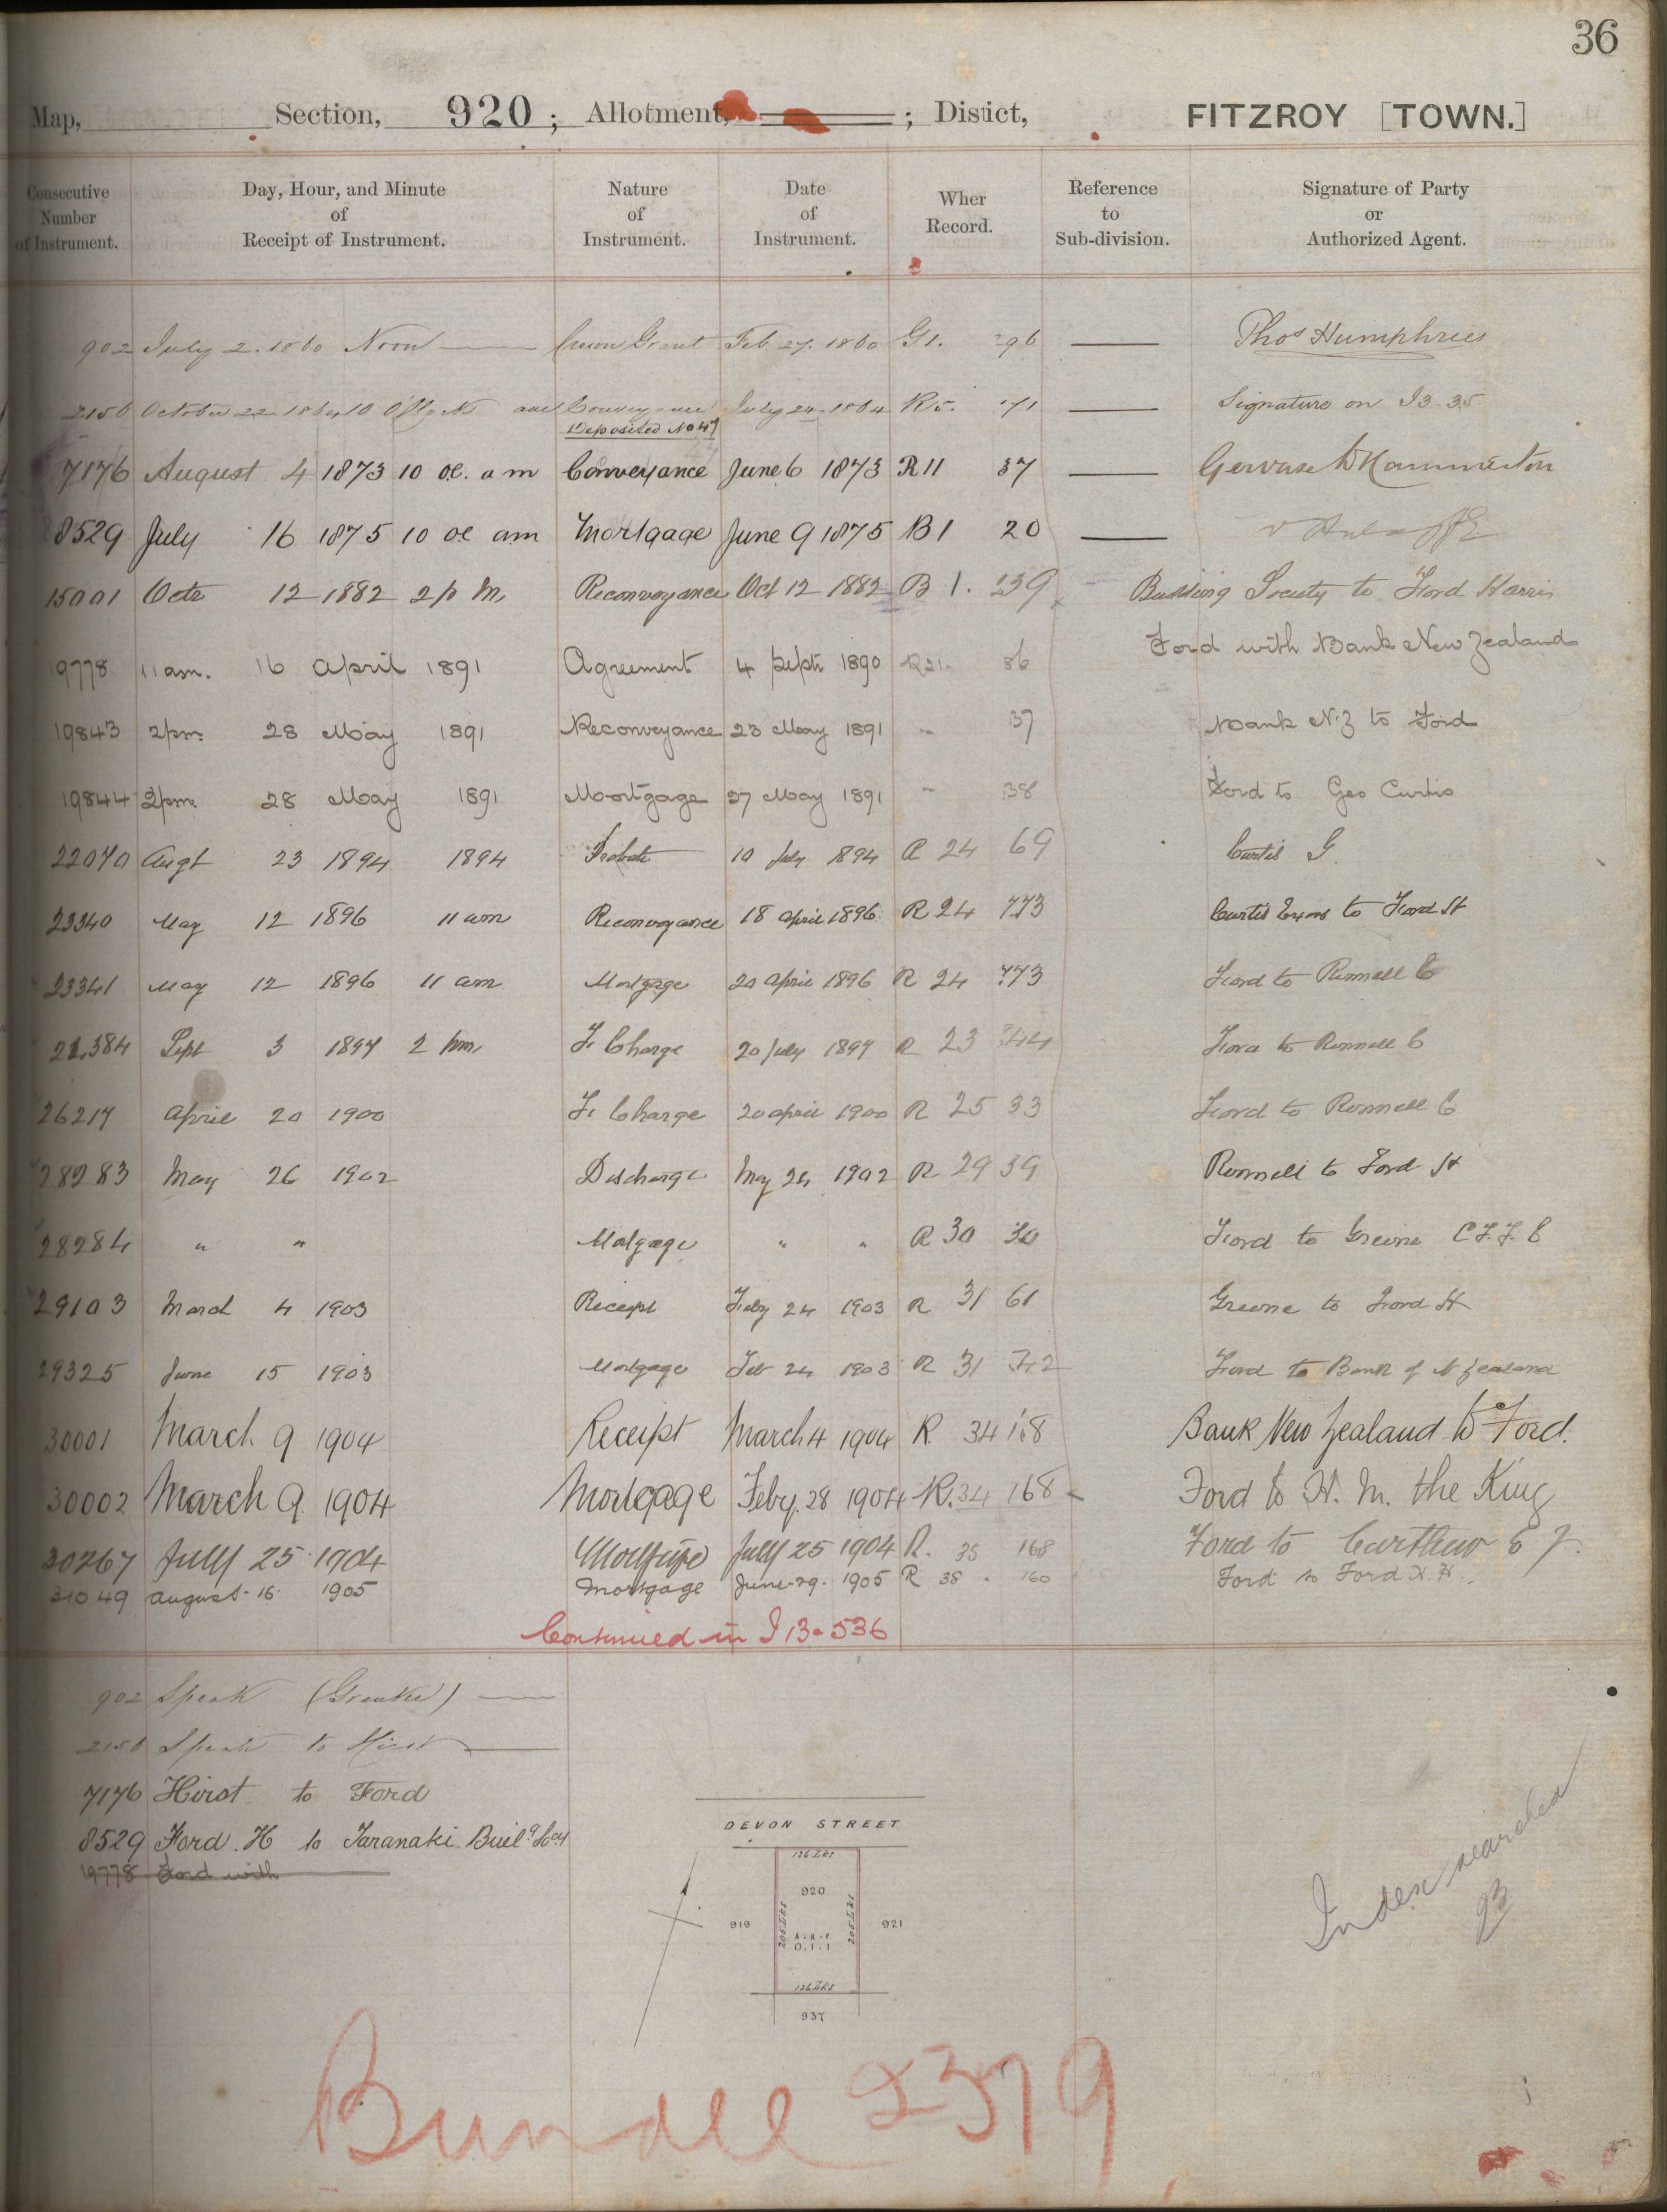 36
Map, Section, 920 ; Allotment, ; District, FITZROY [TOWN.]
Consecutive Number of Instrument. Day, Hour, and Minute of Receipt of Instrument. Nature of Instrument. Date of Instrument. Wher Record. Reference to Sub-division. Signature of Party or Authorized Agent.
902 July 2. 1860 Noon Crown Grant Feb 27. 1860 G1. 296 Thos Humphries
2156 October 22 1864 10 O'Clock am Conveyance July 24 1864 R5. 171 Signature on I3.35
Deposited No 47
7176 August 4 1873 10 oc. a m Conveyance June 6 1873 R11 37
8529 July 16 1875 10 oc am Mortgage June 9 1875 B1 20
15001 Octr 12 1882 2 p m, Reconveyance Oct 12 1882 B 1. 239 Building Society to Ford Harris
19778 11am. 16 April 1891 Agreement 4 Septr 1890 R21. 86 Ford with Bank New Zealand
19843 2pm. 28 May 1891 Reconveyance 23 May 1891 " 37 Bank N.Z to Ford
19844 2pm. 28 May 1891 Mortgage 27 May 1891 " 38 Ford to Geo Curtis
22070 Augt 23 1894 1894 Probate 10 July 1894 R 24 69 Curtis G.
23340 May 12 1896 11 am Reconveyance 18 April 1896 R 24 773 Curtis Exors to Ford H
23341 May 12 1896 11 am Mortgage 20 April 1896 R 24 773 Ford to Rennell C
Sept 3 1897 2 pm, F. Charge 20 July 1897 R 23 344 Ford to Rennell C
26217 April 20 1900 F. Charge 20 April 1900 R 25 33 Ford to Rennell C
28283 May 26 1902 Discharge May 24 1902 R 29 39 Rennell to Ford H
28284 " " Mortgage " " R 30 30 Ford to Greene C.F.F.E
29103 March 4 1903 Receipt Feby 24 1903 R 31 61 Greene to Ford H
29325 June 15 1903 Mortgage Feb 24 1903 R 31 Ford to Bank of N Zealand
30001 March 9 1904 Receipt March 4 1904 R. 34 168 Bank New Zealand to Ford.
30002 March 9 1904 Mortgage Feby. 28 1904 R. 34 168 Ford to H. M. the King
30267 July 25 1904 Mortgage July 25 1904 R. 35 168 Ford to Carthew E J.
31049 August 16 1905 Mortgage June 29. 1905 R 38 160 Ford to Ford H. H.
Continued in I 13.536
902 Speak (Grantee)
2156 Speak to Hirst
7176 Hirst to Ford
8529 Ford. H to Taranaki Builg Socy
19778 Ford with
DEVON STREET
126 LKS
920
919 205 LKS 205 LKS 921
A. R. P
0. 1. 1
126 LKS
937
Index searched
Bundle 2379